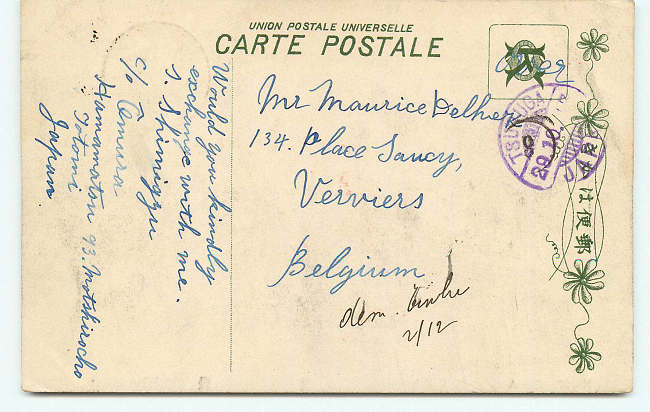 UNION POSTALE UNIVERSELLE
CARTE POSTALE
Would you kindly
exchange with me.
S. Shimizu
c/o Omura
Hamamatsu 93. Motoshirocho
Totomi
Japan
over
Mr Maurice Delher
134. Place Saucy,
Verviers
Belgium
2/12
TSURUGA
29.10.
きがは便郵